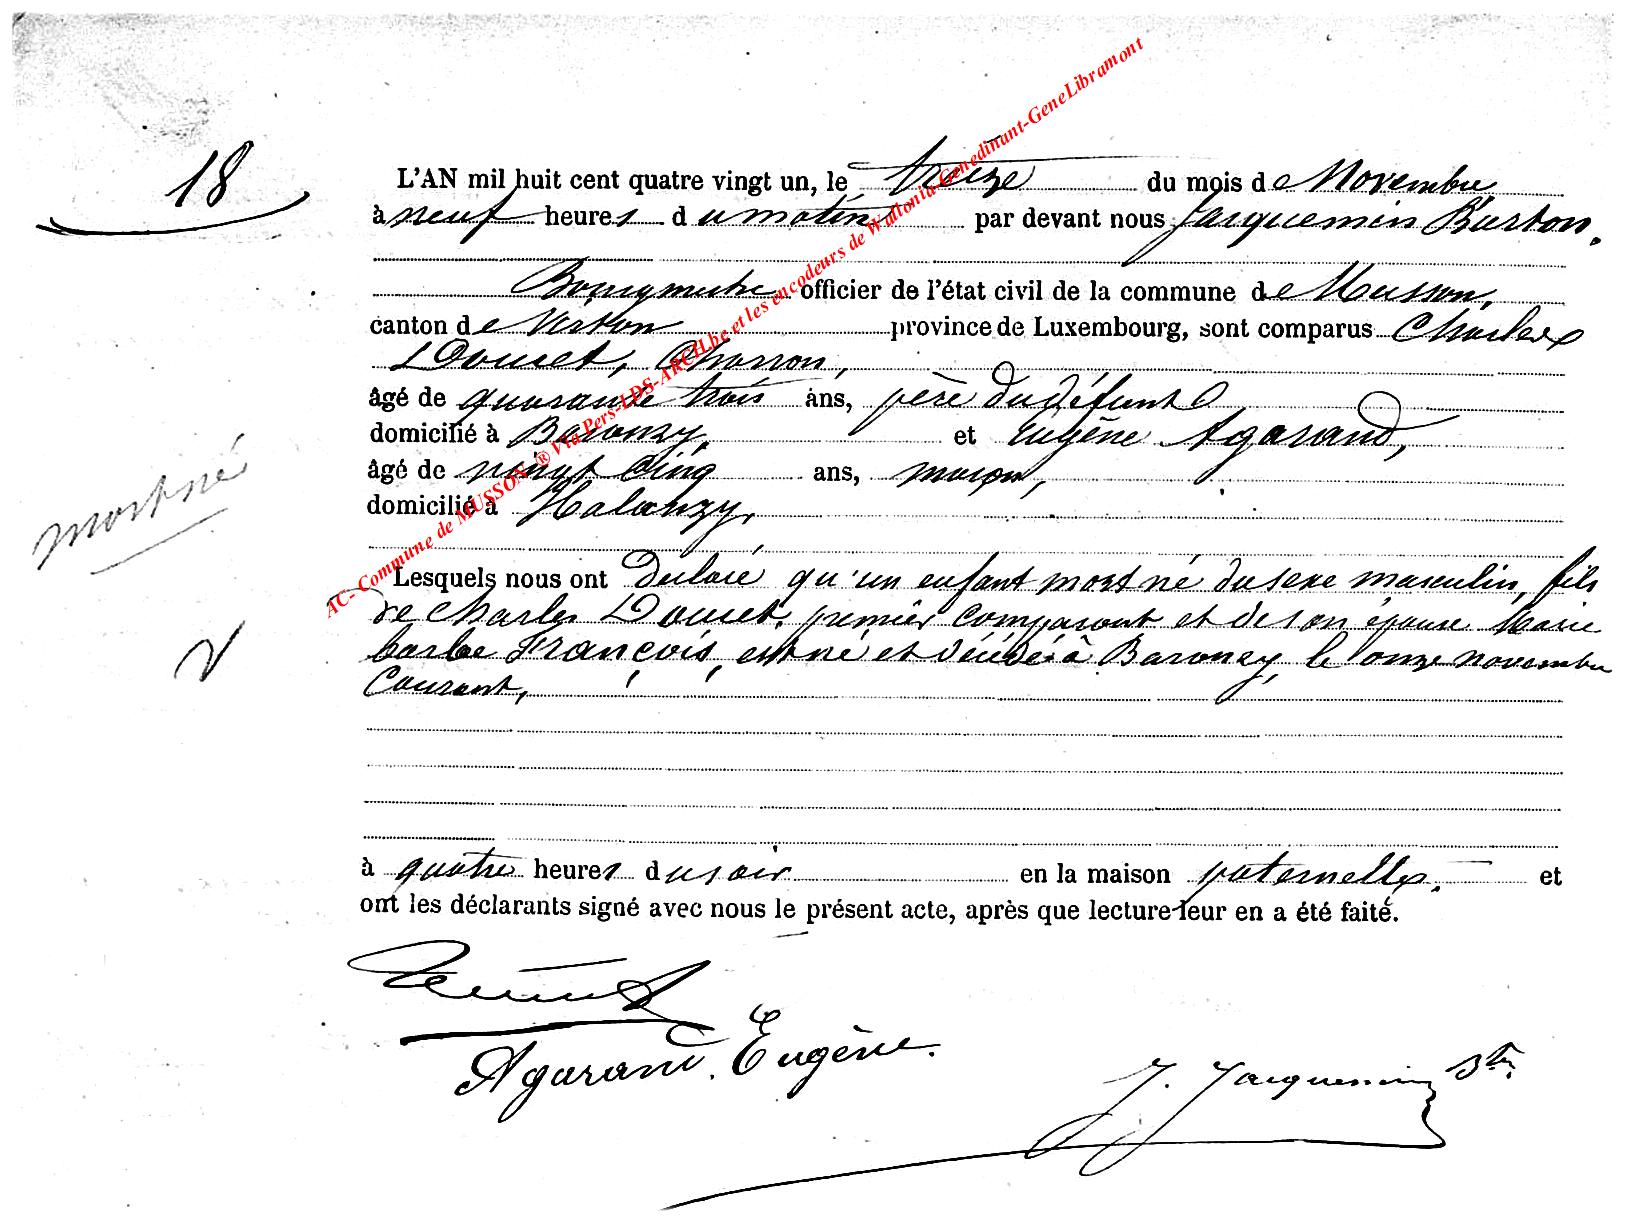 18
L'AN mil huit cent quatre vingt un, le treize du mois de Novembre
à neuf heures du matin par devant nous Jacquemin Burton.
Bourgmestre officier de l'état civil de la commune de Musson,
canton de Virton province de Luxembourg, sont comparus Charles
Doucet, Charron,
âgé de quarante trois ans, père du défunt
domicilié à Baronzy, et Eugène Agarand,
âgé de vingt cinq ans, maçon,
domicilié à Halanzy,
mort né
Lesquels nous ont déclaré qu'un enfant mort né du sexe masculin, fils
de Charles Doucet, premier comparant et de son épouse Marie
barbe François, est né et décédé à Baronzy, le onze novembre
Courant,
à quatre heures du soir en la maison paternelle. et
ont les déclarants signé avec nous le présent acte, après que lecture leur en a été faite.
Agarand. Eugène.
J. Jacquemin Btn.
AC- Commune de MUSSON ® Via Pers-LDS-ARCH.be et les encodeurs de Wallonia-Genedinant-GeneLibramont